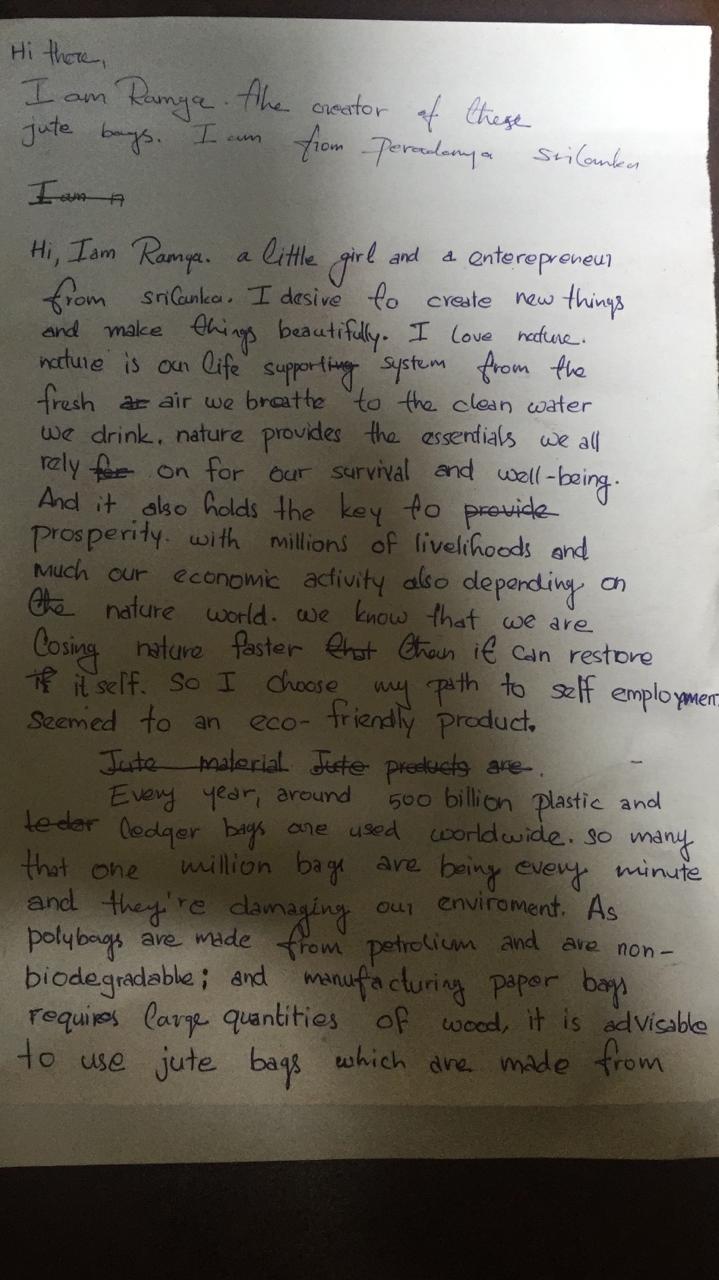 Hi there,
I am Ramya. the creator of these
jute bags. I am from Peradenya Srilanka
I am
Hi, I am Ramya. a little girl and a enterepreneur
from srilanka. I desire to create new things
and make things beautifully. I love nature.
nature is our life supporting system from the
fresh air we breathe to the clean water
we drink. nature provides the essentials we all
rely for on for our survival and well-being.
And it also holds the key to provide
prosperity. with millions of livelihoods and
much our economic activity also depending on
the nature world. we know that we are
losing nature faster that than it can restore
it self. So I choose my path to self employment
seemed to an eco-friendly product.
Jute material Jute products are.
Every year, around 500 billion plastic and
ledger bags are used worldwide. so many
that one million bags are being every minute
and they're damaging our enviroment. As
polybags are made from petrolium and are non-
biodegradable; and manufacturing paper bags
requires large quantities of wood, it is advisable
to use jute bags which are made from